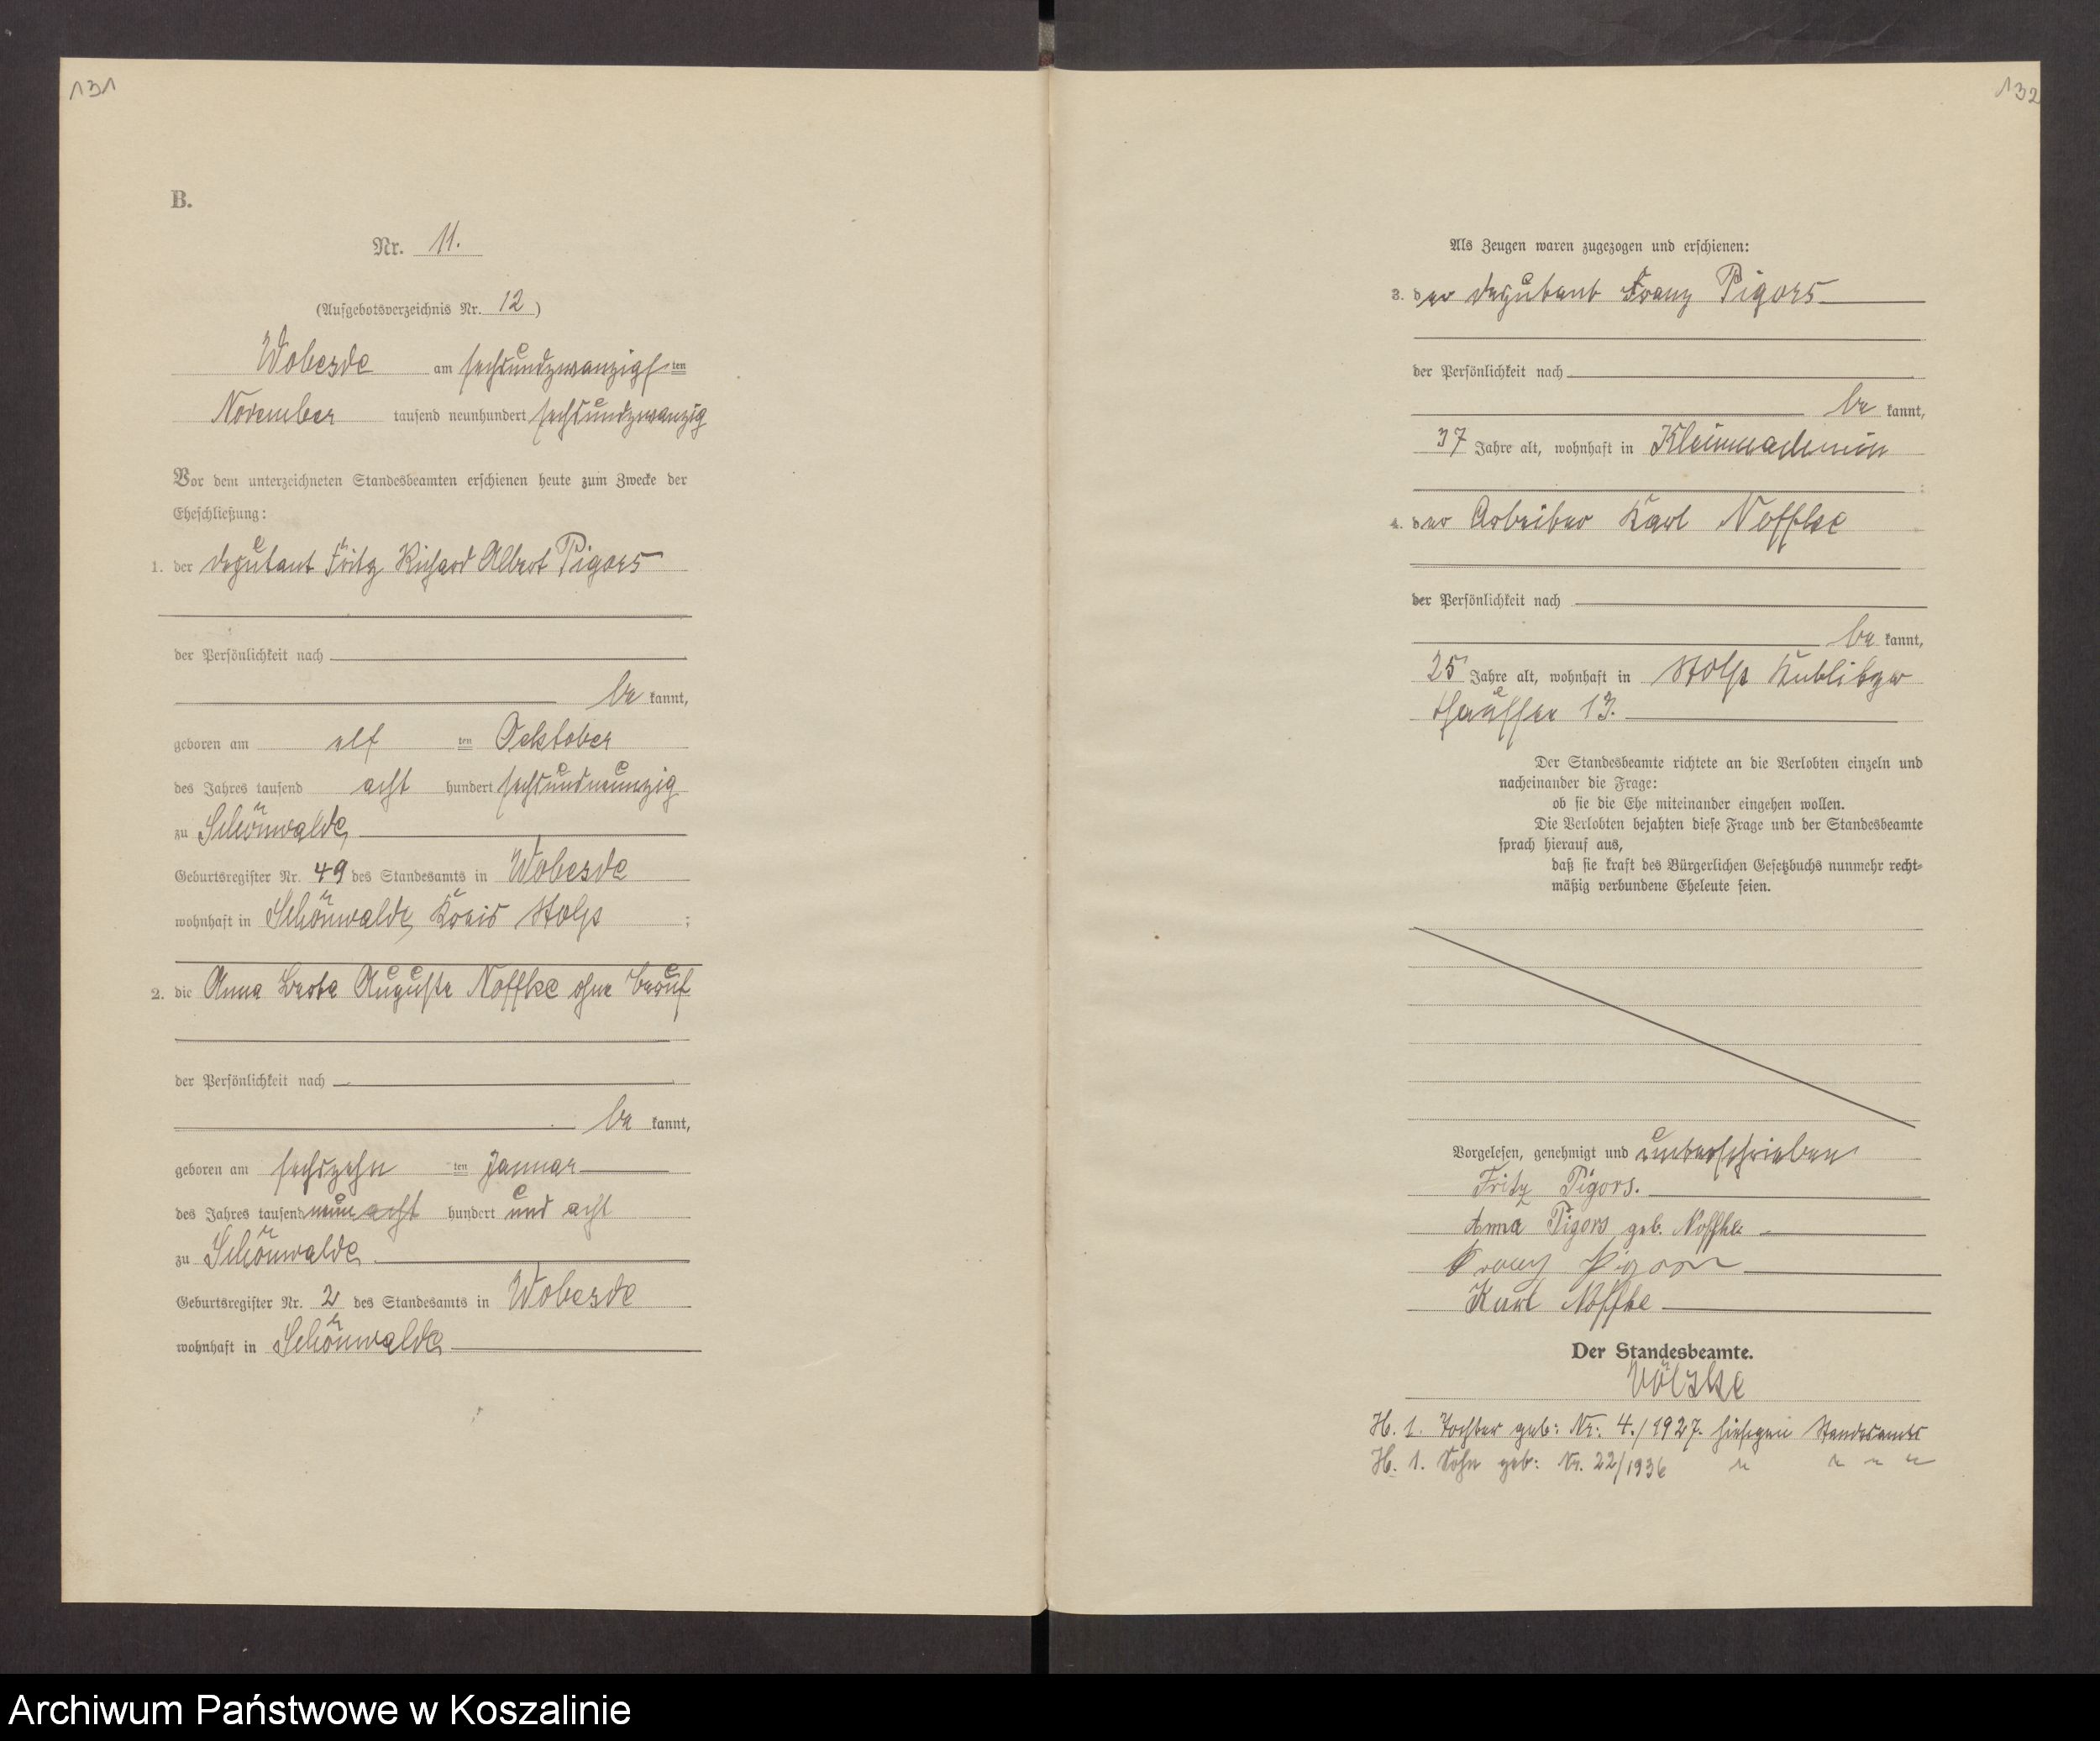 131
B.
Nr. 11.
(Aufgebotsverzeichnis Nr. 12)
Wobesde am sechsundzwanzigsten
November tausend neunhundert sechsundzwanzig
Vor dem unterzeichneten Standesbeamten erschienen heute zum Zwecke der
Eheschließung:
1. der Deputant Fritz Richard Albert Pigors
der Persönlichkeit nach
be kannt,
geboren am elf ten Ocktober
des Jahres tausend acht hundert sechsundneunzig
zu Schönwalde,
Geburtsregister Nr. 49 des Standesamts in Wobesde
wohnhaft in Schönwalde, Kreis Stolp ;
2. die Anna Berta Auguste Noffke ohne Beruf
der Persönlichkeit nach
be kannt,
geboren am sechszehn ten Januar
des Jahres tausend neun acht hundert und acht
zu Schönwalde
Geburtsregister Nr. 2 des Standesamts in Wobesde
wohnhaft in Schönwalde
132
Als Zeugen waren zugezogen und erschienen:
3. der Deputant Franz Pigors
der Persönlichkeit nach
be kannt,
37 Jahre alt, wohnhaft in
4. der Arbeiter Karl Noffke
der Persönlichkeit nach
be kannt,
25 Jahre alt, wohnhaft in Stolp Kublitzer
Chaussee 13.
Der Standesbeamte richtete an die Verlobten einzeln und
nacheinander die Frage:
ob sie die Ehe miteinander eingehen wollen.
Die Verlobten bejahten diese Frage und der Standesbeamte
sprach hierauf aus,
daß sie kraft des Bürgerlichen Gesetzbuchs nunmehr recht-
mäßig verbundene Eheleute seien.
Vorgelesen, genehmigt und unterschrieben
Fritz Pigors.
Anna Pigors geb. Noffke
Franz Pigors
Karl Noffke
Der Standesbeamte.
Völzke
H. 1. Tochter geb: Nr: 4./1927. hiesigen Standesamts
H. 1. Sohn geb: Nr. 22/1936 " " " "
Archiwum Państwowe w Koszalinie